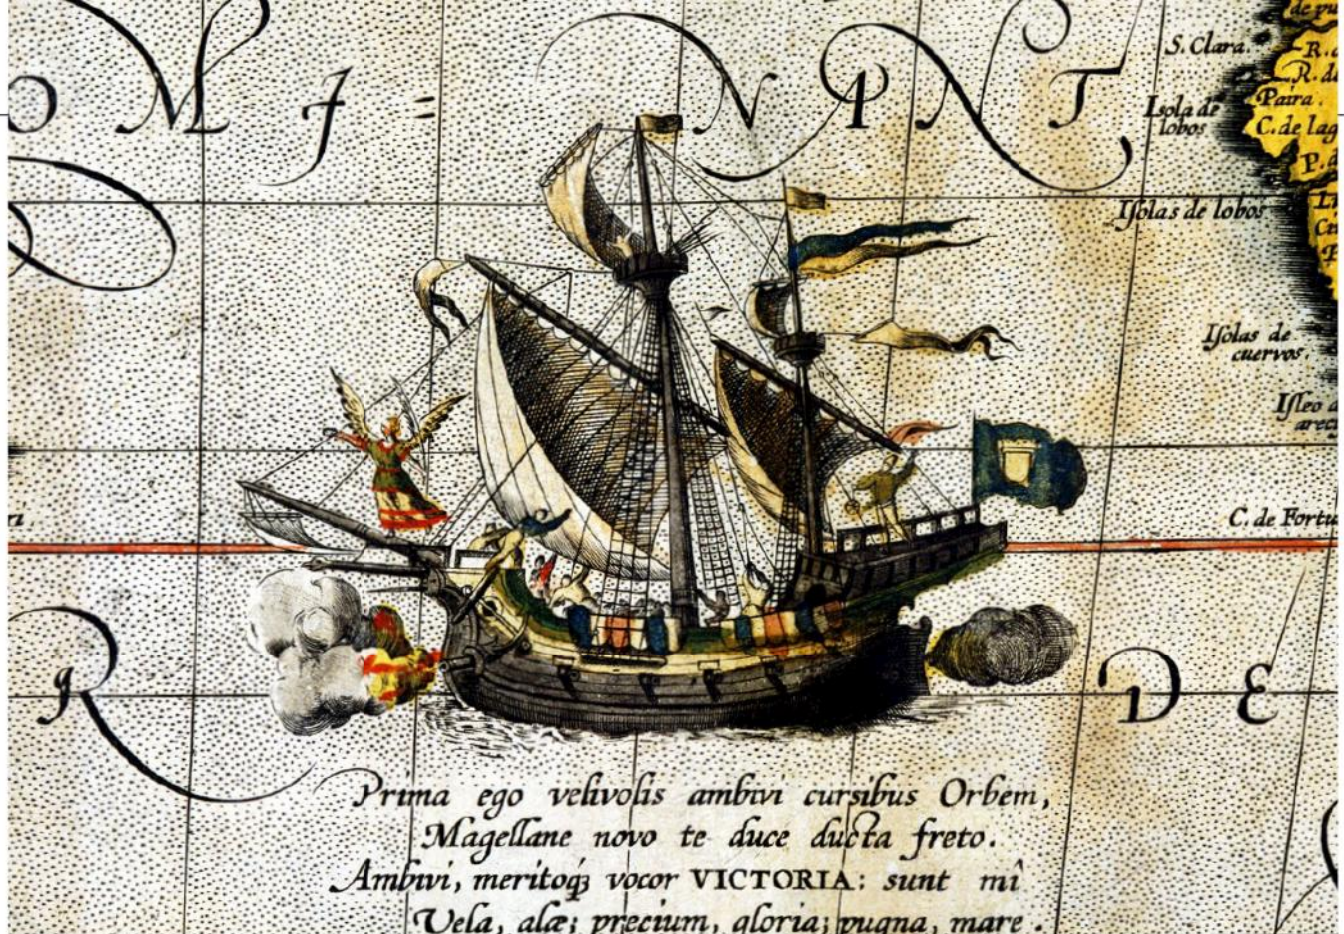 O M I = N A N T
S. Clara.
R.
R. de
Paira.
Isola de
lobos
C. de lag
P.
Isolas de lobos
Isolas de
cuervos.
Isleo
C. de Fortu
R
D E
Prima ego velivolis ambivi cursibus Orbem,
Magellane novo te duce ducta freto.
Ambivi, meritoq́ʒ vocor VICTORIA: sunt mî
Vela, alæ; precium, gloria; pugna, mare.